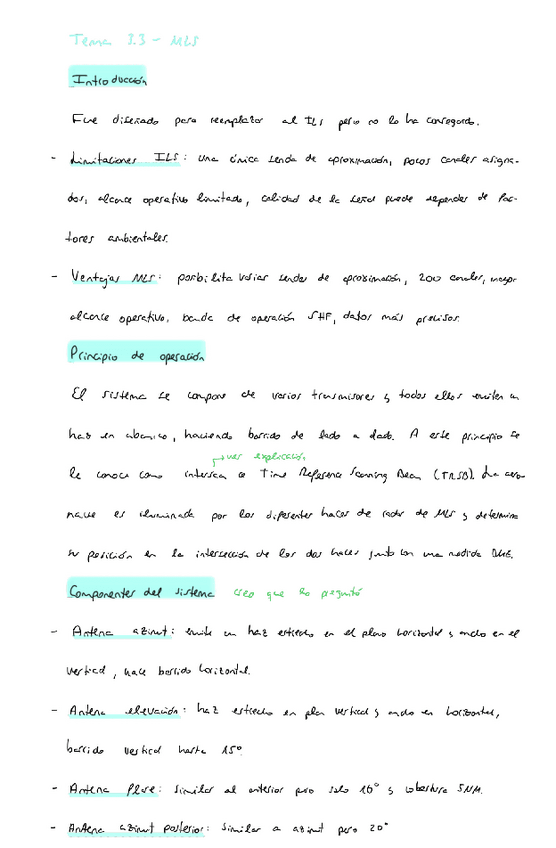 Tema 3.3 - MLS
Introducción
Fue diseñado para reemplazar al ILS pero no lo ha conseguido.
- Limitaciones ILS: una única senda de aproximación, pocos canales asigna-
dos, alcance operativo limitado, calidad de la señal puede depender de fac-
tores ambientales.
- Ventajas MLS: posibilita varias sendas de aproximación, 200 canales, mayor
alcance operativo, banda de operación SHF, datos más precisos.
Principio de operación
El sistema se compone de varios transmisores y todos ellos emiten un
haz en abanico, haciendo barrido de lado a lado. A este principio se
ver explicación
le conoce como Time Reference Scanning Beam (TRSB). La aero-
nave es iluminada por los diferentes haces de radar de MLS y determina
su posición en la intersección de los dos haces junto con una medida DME.
Componentes del sistema creo que lo preguntó
- Antena azimut: emite un haz estrecho en el plano horizontal y ancho en el
vertical, hace barrido horizontal.
- Antena elevación: haz estrecho en plan vertical y ancho en horizontal,
barrido vertical hasta 15°.
- Antena flare: similar al anterior pero solo 10° y cobertura 5NM.
- Antena azimut posterior: similar a azimut pero 20°